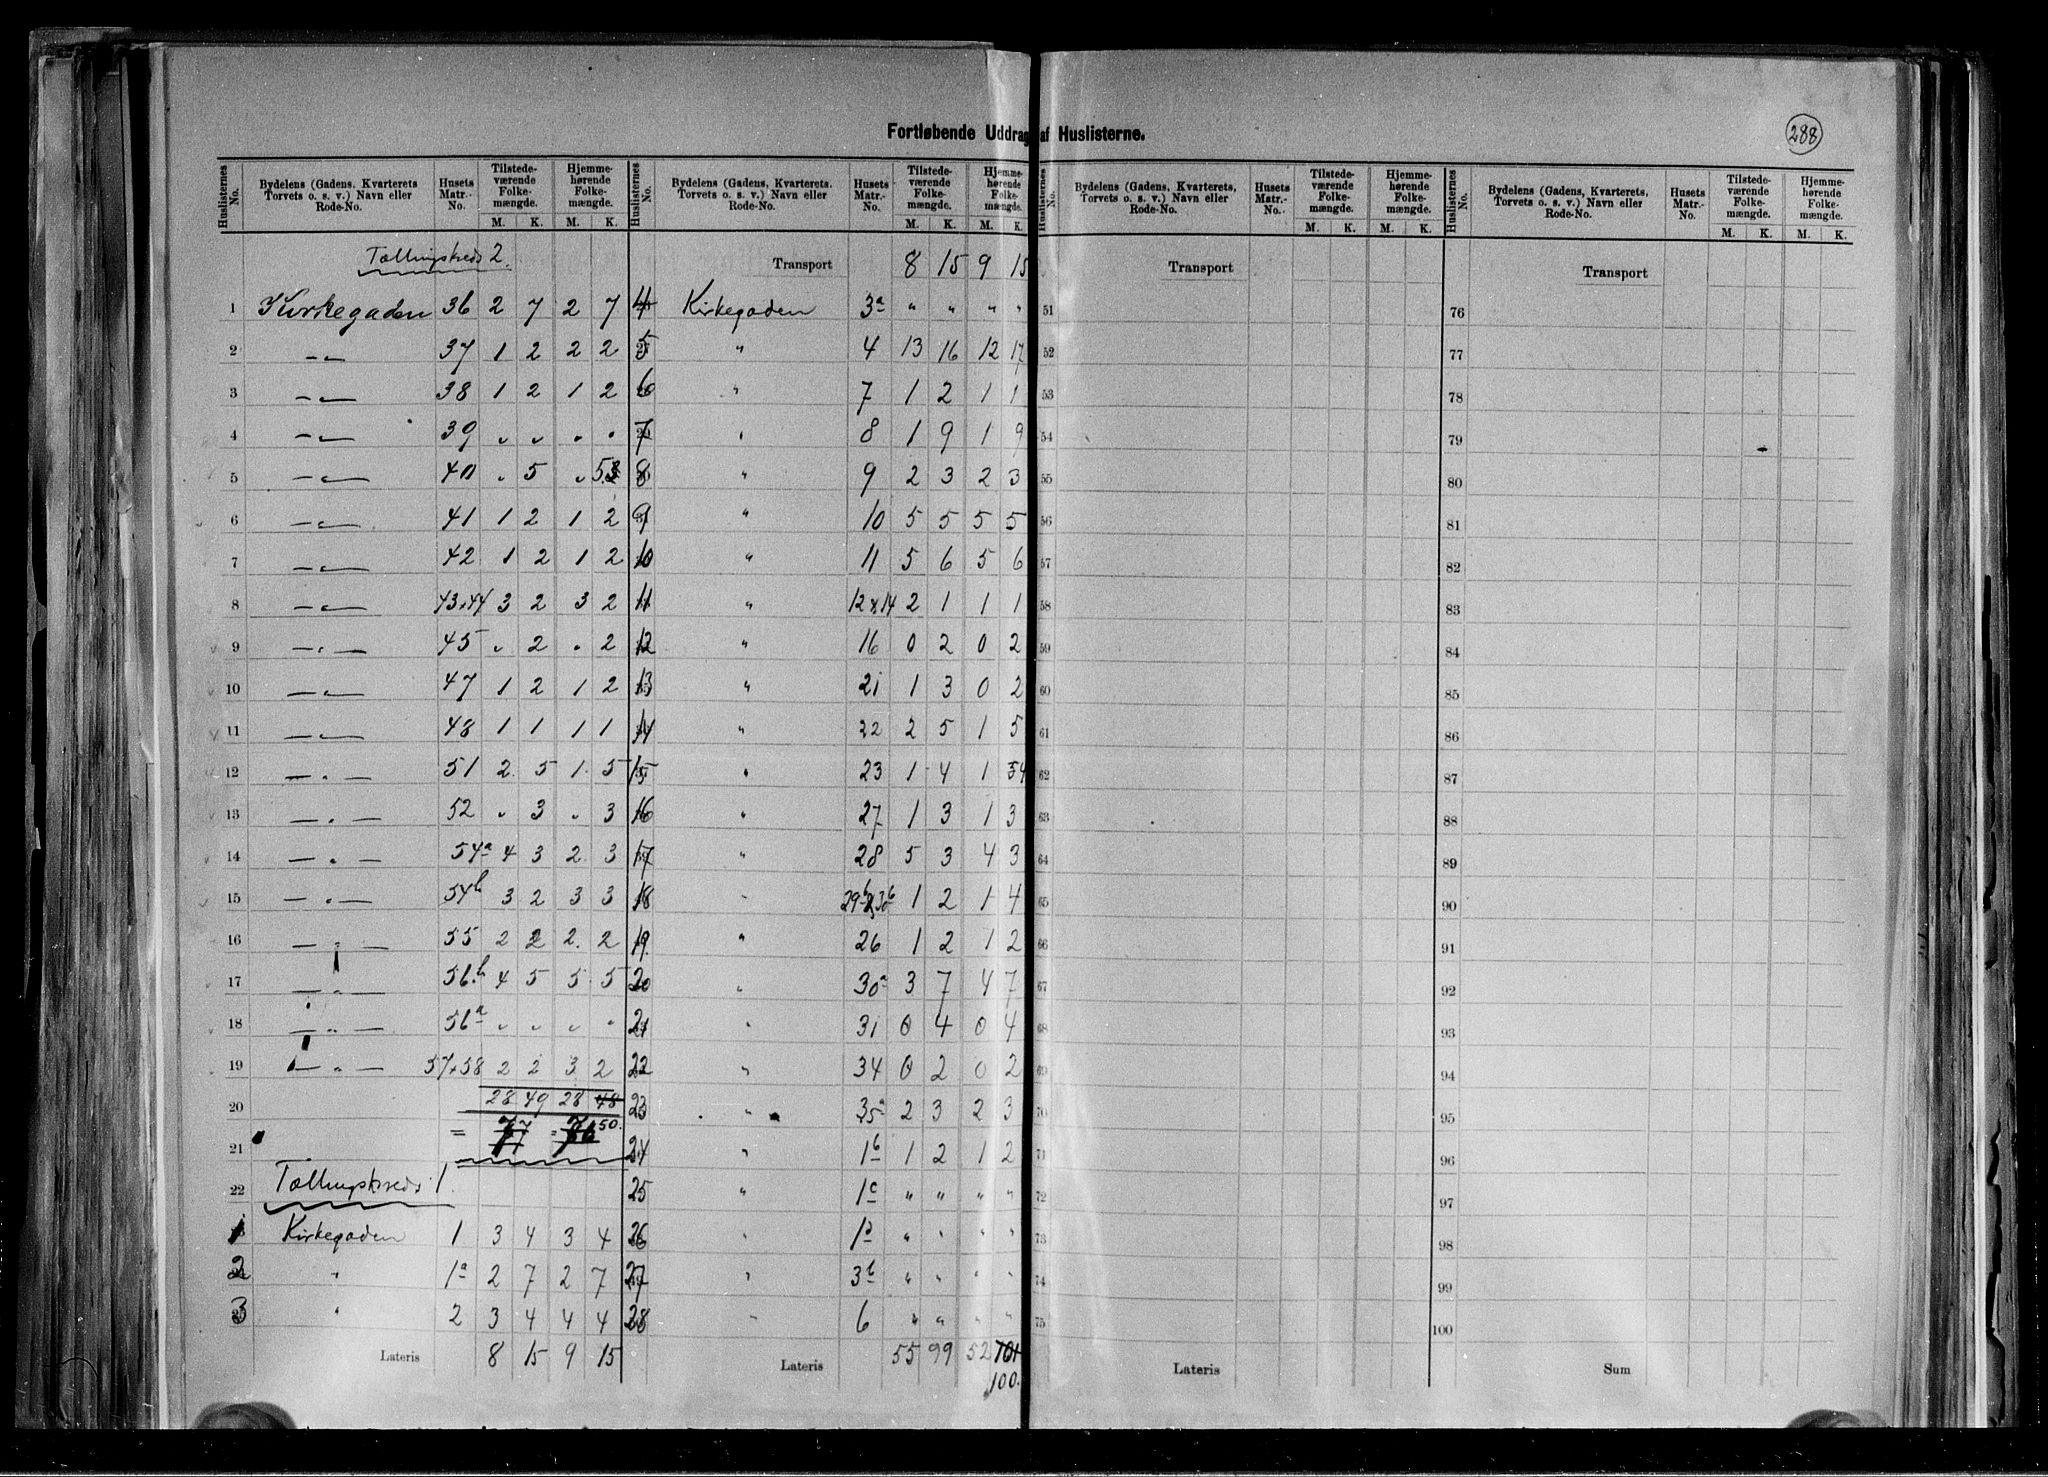 288
Fortløbende Uddrag af Huslisterne.
Huslisternes No. | Bydelens (Gadens, Kvarterets Torvets o. s. v.) Navn eller Rode-No. | Husets Matr.-No. | Tilstedeværende Folkemængde. M. K. | Hjemmehørende Folkemængde. M. K.
Tællingskreds 2.
1 Kirkegaden 36 2 7 2 7
2 — " — 37 1 2 2 2
3 — " — 38 1 2 1 2
4 — " — 39 " " " "
5 — " — 40 " 5 " 5
6 — " — 41 1 2 1 2
7 — " — 42 1 2 1 2
8 — " — 43 x 44 3 2 3 2
9 — " — 45 " 2 " 2
10 — " — 47 1 2 1 2
11 — " — 48 1 1 1 1
12 — " — 51 2 5 1 5
13 — " — 52 " 3 " 3
14 — " — 54a 4 3 2 3
15 — " — 54b 3 2 3 3
16 — " — 55 2 2 2 2
17 — " — 56b 4 5 5 5
18 — " — 56a " " " "
19 — " — 57 x 58 2 2 3 2
20 28 49 28 48
21 = 77 = 76 50.
22 Tællingskreds 1.
1 Kirkegaden 1 3 4 3 4
2 " 1a 2 7 2 7
3 " 2 3 4 4 4
Lateris 8 15 9 15
Huslisternes No. | Bydelens (Gadens, Kvarterets. Torvets o. s. v.) Navn eller Rode-No. | Husets Matr.-No. | Tilstedeværende Folkemængde. M. K. | Hjemmehørende Folkemængde. M. K.
Transport 8 15 9 15
4 Kirkegaden 3a " " " "
5 " 4 13 16 12 17
6 " 7 1 2 1 1
7 " 8 1 9 1 9
8 " 9 2 3 2 3
9 " 10 5 5 5 5
10 " 11 5 6 5 6
11 " 12 x 14 2 1 1 1
12 " 16 0 2 0 2
13 " 21 1 3 0 2
14 " 22 2 5 1 5
15 " 23 1 4 1 4
16 " 27 1 3 1 3
17 " 28 5 3 4 3
18 " 29b x 30b 1 2 1 4
19 " 26 1 2 1 2
20 " 30a 3 7 4 7
21 " 31 0 4 0 4
22 " 34 0 2 0 2
23 " 35a 2 3 2 3
24 " 1b 1 2 1 2
25 " 1c " " " "
26 " 1d " " " "
27 " 3b " " " "
28 " 6 " " " "
Lateris 55 99 52 101
100.
Huslisternes No. | Bydelens (Gadens, Kvarterets, Torvets o. s. v.) Navn eller Rode-No. | Husets Matr.-No. | Tilstedeværende Folkemængde. M. K. | Hjemmehørende Folkemængde. M. K.
Transport
51
52
53
54
55
56
57
58
59
60
61
62
63
64
65
66
67
68
69
70
71
72
73
74
75
Lateris
Huslisternes No. | Bydelens (Gadens, Kvarterets, Torvets o. s. v.) Navn eller Rode-No. | Husets Matr.-No. | Tilstedeværende Folkemængde. M. K. | Hjemmehørende Folkemængde. M. K.
Transport
76
77
78
79
80
81
82
83
84
85
86
87
88
89
90
91
92
93
94
95
96
97
98
99
100
Sum